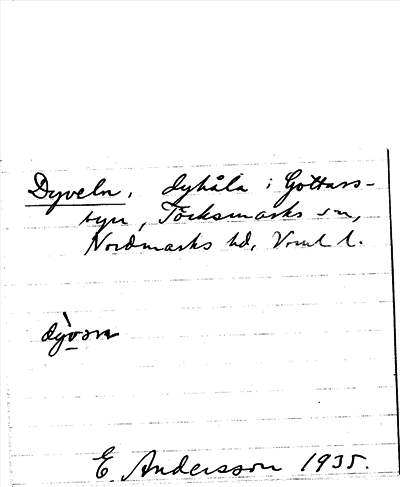 Dyveln, dyhåla i Gottars-
byn, Töcksmarks sn,
Nordmarks hd, Vrml l.
E Andersson 1935.